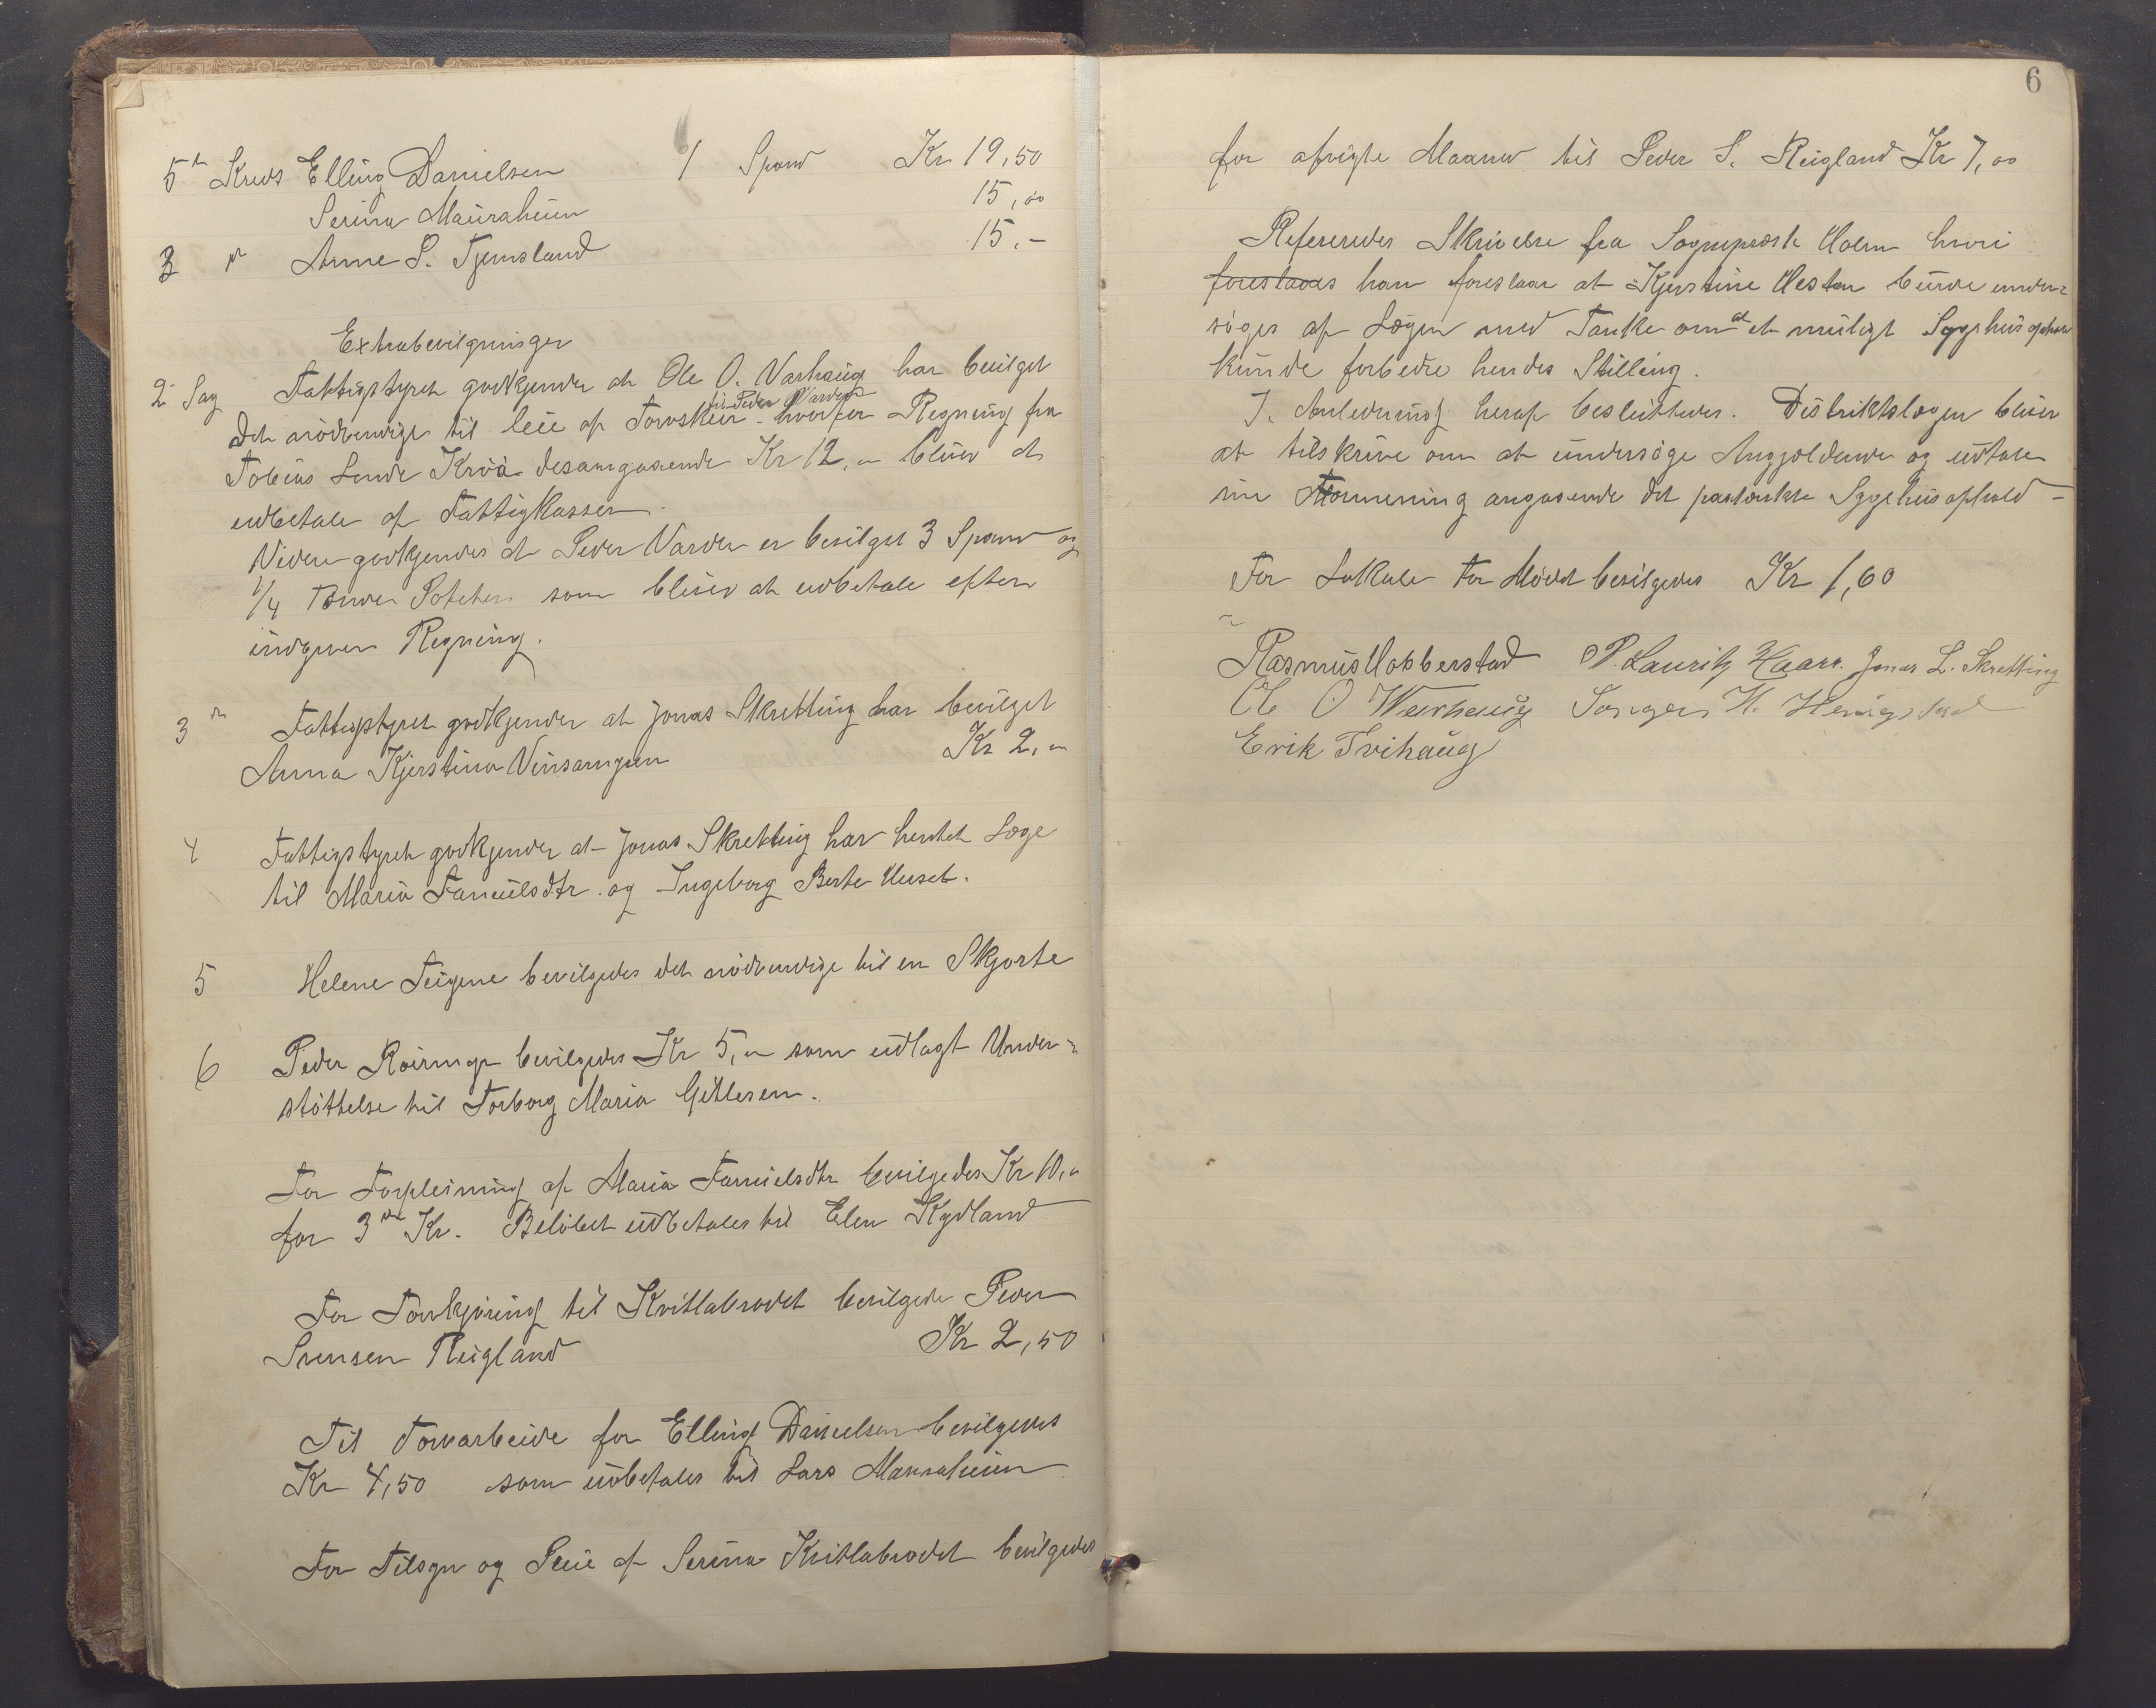 5te Kreds Elling Danielsen 1 Spand Kr 19,50
Serina Mauraheien 15,00
3 " Anne S. Tjemsland 15,-
Extrabevilgninger
2 Sag Fattigstyret godkjender at Ole O. Varhaug har bevilget
til Peder Varden
det nödvendige til leie af Torvskur hvorfor Regning fra
Tobias Lende desangaaende Kr 12,00 bliver at
udbetale af Fattigkassen.
Videre godkjendes at Peder Varden er bevilget 3 Spand og
1/4 Tönde Poteter som bliver at udbetale efter
indgiven Regning.
3 Fattigstyret godkjender at Jonas Skretting har bevilget
Anna Kjerstina Kr 2,00
4 Fattigstyret godkjender at Jonas Skretting har hentet Læge
til Maria Danielsdtr. og Ingeborg Berte
5 Helene bevilgedes det nödvendige til en Skjorte
6 Peder bevilgedes Kr 5,00 som udlagt Under=
stöttelse til Torborg Maria Gitlesen.
For Forpleining af Maria Danielsdtr bevilgedes Kr 10,00
for 3die Kv. Belöbet udbetales til Elen Kydland
For Torvkjöring til Kvitlabrodet bevilgedes Peder
Svensen Reigland Kr 2,50
Til Torvarbeide for Elling Danielsen bevilgedes
Kr 4,50 som udbetales til Lars Mauraheien
For Tilsyn og Pleie af Serina Kvitlabrodet bevilgedes
6
for afvigte Maaned til Peder S. Reigland Kr 7,00
Refereredes Skrivelse fra Sogneprest Holm hvori
foreslaaes han foreslaar at Kjerstine burde under=
söges af Lægen med Tanke om at et muligt Sygehusophold
kunde forbedre hendes Stilling.
I Anledning heraf besluttedes. Distriktslægen bliver
at tilskrive om at undersöge Angjeldende og udtale
sin Formening angaaende det paatænkte Sygehusophold -
For Lokale for Mödet bevilgedes Kr 1,60
Rasmus Hobberstad P. Lauritz Haarr. Jonas L. Skretting
Ole O Warhaug H. Herigstad
Erik Tvihaug